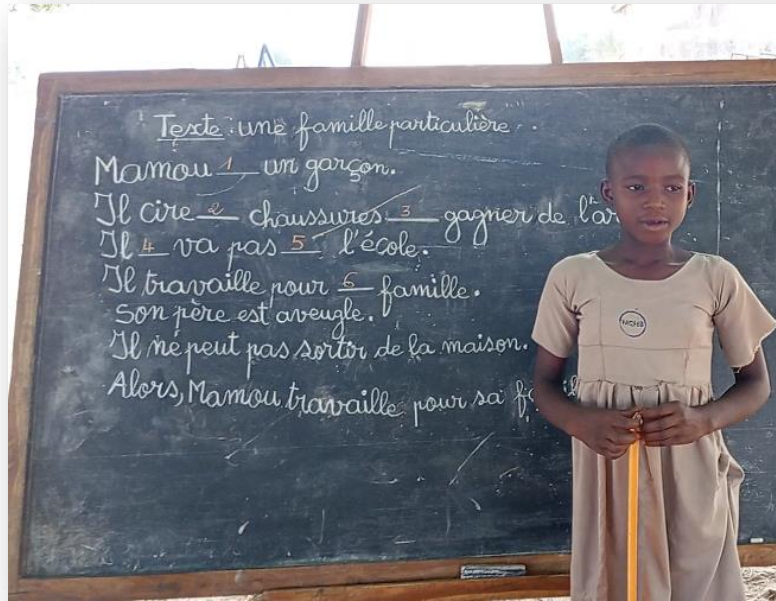 Texte : une famille particulière.
Mamou 1 un garçon.
Il cire 2 chaussures 3 gagner de l'ar
Il 4 va pas 5 l'école.
Il travaille pour 6 famille.
Son père est aveugle.
Il ne peut pas sortir de la maison.
Alors, Mamou travaille pour sa